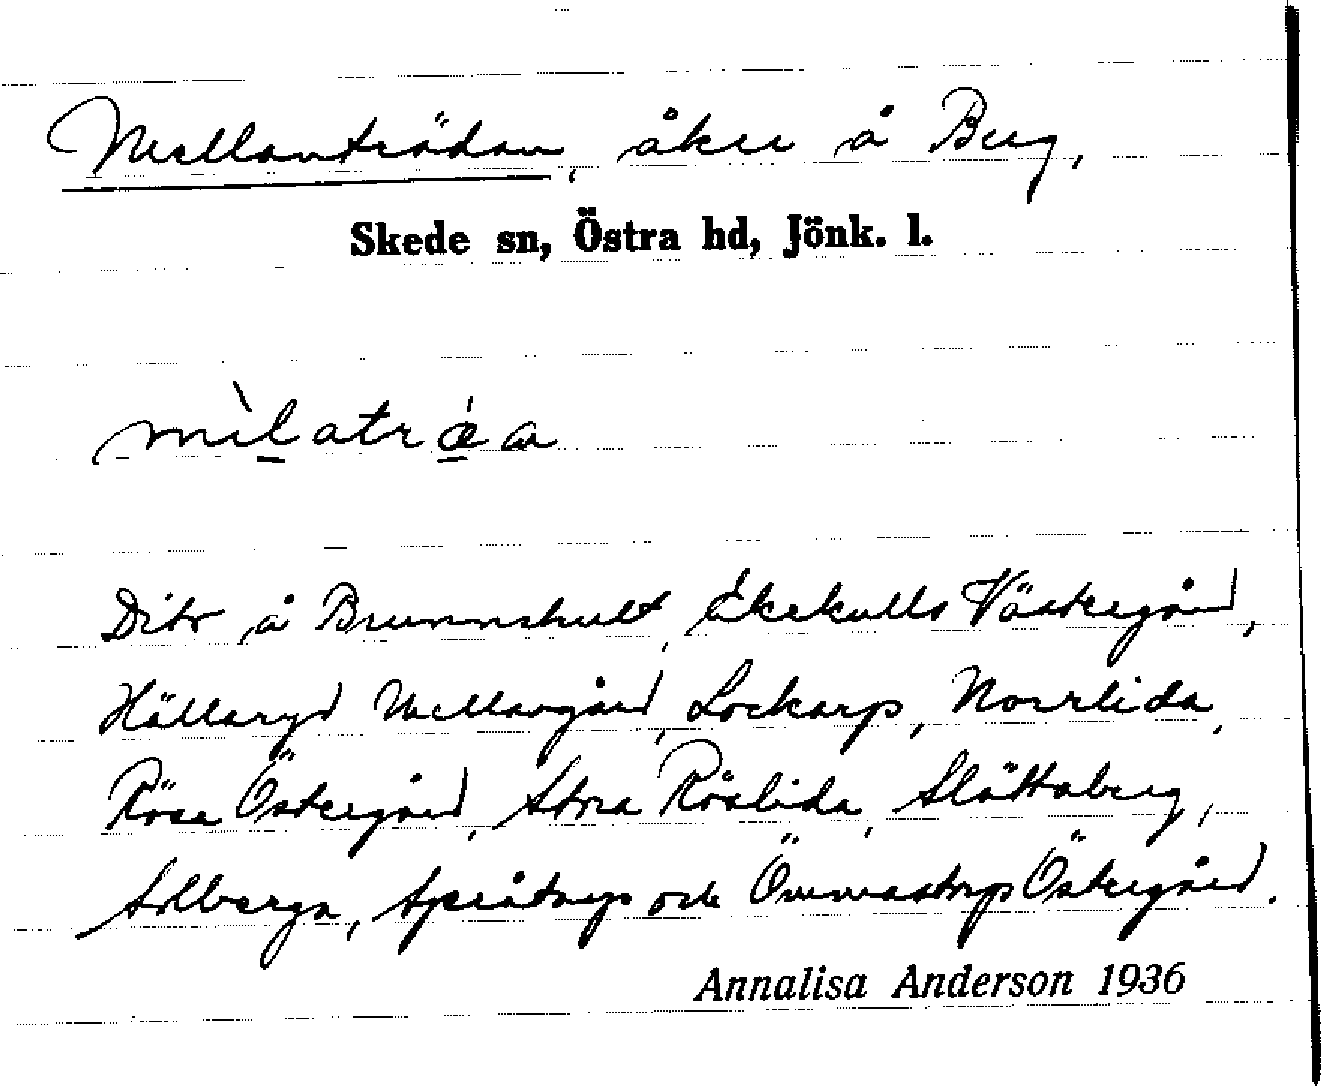 Mellanträdan, åker å Berg,
Skede sn, Östra hd, Jönk. l.
mìlatrǽa
Dito å Brunnshult, Ekekulls Västergård,
Hällaryd Mellangård, Lockarp, Norrlida,
Rösa Östergård, Stora Röslida, Slättaberg,
Solberga, Språtorp och Ömmestorps Östergård.
Annalisa Anderson 1936